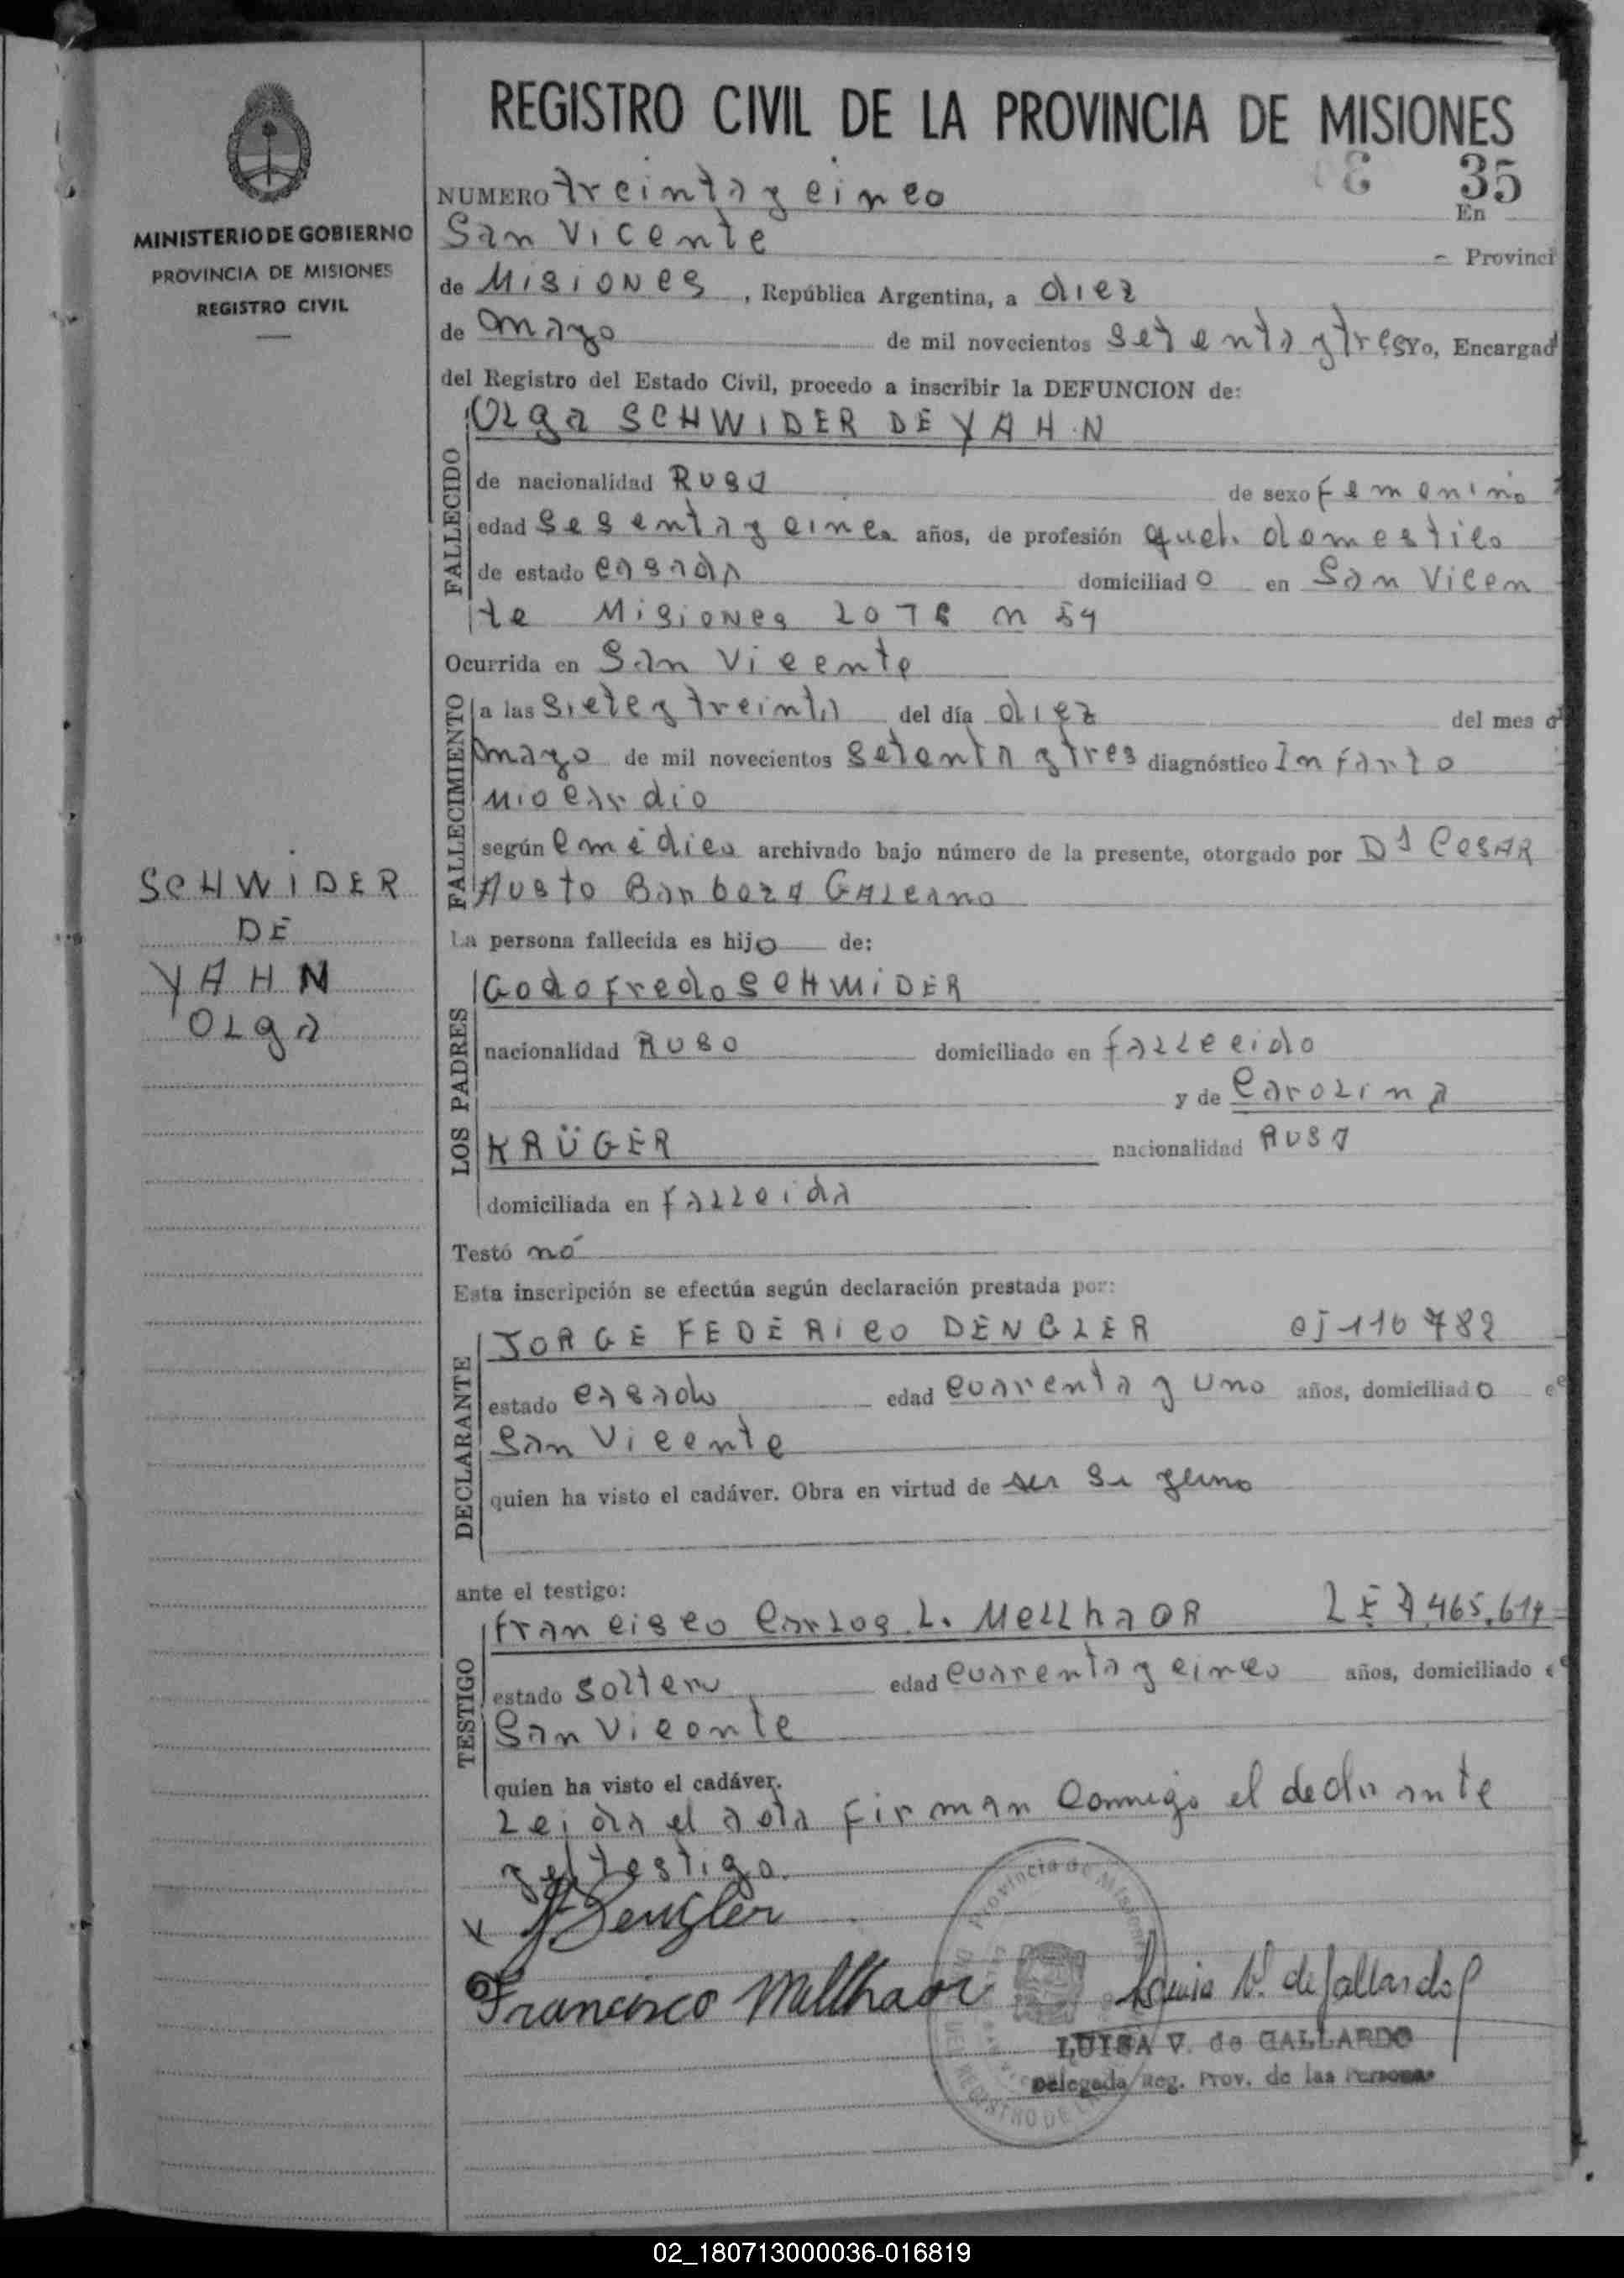 REGISTRO CIVIL DE LA PROVINCIA DE MISIONES
MINISTERIO DE GOBIERNO
PROVINCIA DE MISIONES
REGISTRO CIVIL
35
NUMERO treinta y cinco En
San Vicente - Provinci
de Misiones , República Argentina, a diez
de mayo de mil novecientos setenta y tres yo, Encargad
del Registro del Estado Civil, procedo a inscribir la DEFUNCION de:
Olga SCHWIDER DE YAHN
FALLECIDO
de nacionalidad Rusa de sexo femenino
edad sesenta y cinco años, de profesión queh. domestico
de estado casada domiciliado en San Vicen
te Misiones
Ocurrida en San Vicente
FALLECIMIENTO
a las siete y treinta del día diez del mes d
mayo de mil novecientos setenta y tres diagnóstico Infarto
miocardio
según c médico archivado bajo número de la presente, otorgado por
Austo Barboza Galeano
SCHWIDER
DE
YAHN
Olga
La persona fallecida es hijo de:
LOS PADRES
Godofredo SCHWIDER
nacionalidad Ruso domiciliado en fallecido
y de Carolina
KRÜGER nacionalidad Rusa
domiciliada en
Testó nó
Esta inscripción se efectúa según declaración prestada por:
DECLARANTE
JORGE FEDERICO DENGLER
estado casado edad cuarenta y uno años, domiciliado
San Vicente
quien ha visto el cadáver. Obra en virtud de ser su yerno
ante el testigo:
TESTIGO
Francisco Carlos L. Mellhaor LE
estado soltero edad cuarenta y cinco años, domiciliado
San Vicente
quien ha visto el cadáver.
Leida el acta firman conmigo el declarante
y el testigo.
x Dengler
Francisco Mellhaor
Luisa V. de Gallardo
LUISA V. de GALLARDO
Delegada Reg. Prov. de las Personas
02_180713000036-016819